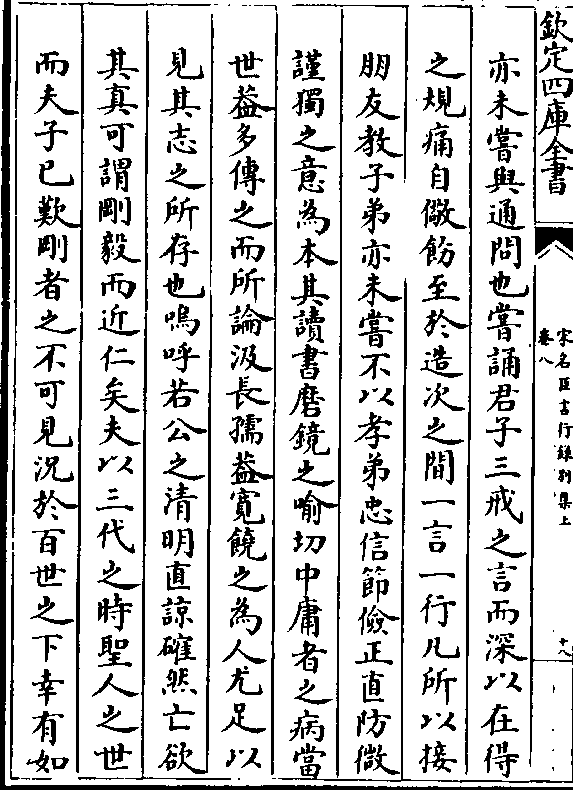 欽定四庫全書
宋名臣言行錄别集上
卷八
十八
亦未嘗與通問也嘗誦君子三戒之言而深以在得
之規痛自儆飭至於造次之間一言一行凡所以接
朋友教子弟亦未嘗不以孝弟忠信節儉正直防微
謹獨之意為本其讀書磨鏡之喻切中庸者之病當
世益多傳之而所論汲長孺葢寛饒之為人尤足以
見其志之所存也嗚呼若公之清明直諒確然亡欲
其真可謂剛毅而近仁矣夫以三代之時聖人之世
而夫子已歎剛者之不可見況於百世之下幸有如